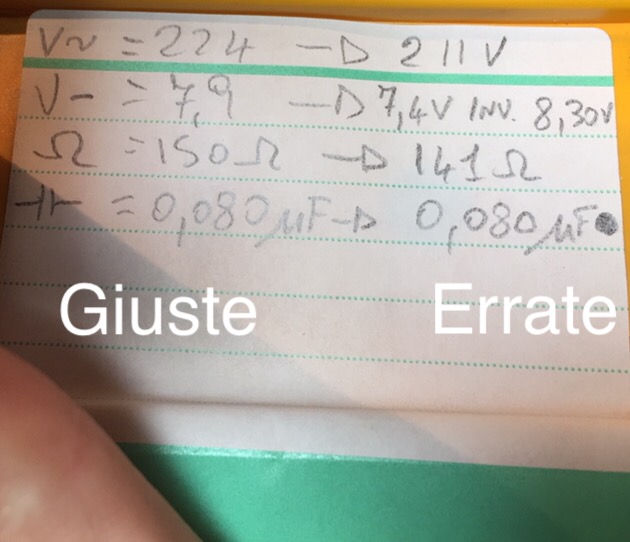 V~ = 224 —▷ 211V
V- = 7,9 —▷ 7,4V INV. 8,30V
Ω = 150Ω —▷ 141Ω
⊣⊢ = 0,080µF —▷ 0,080µF
Giuste Errate